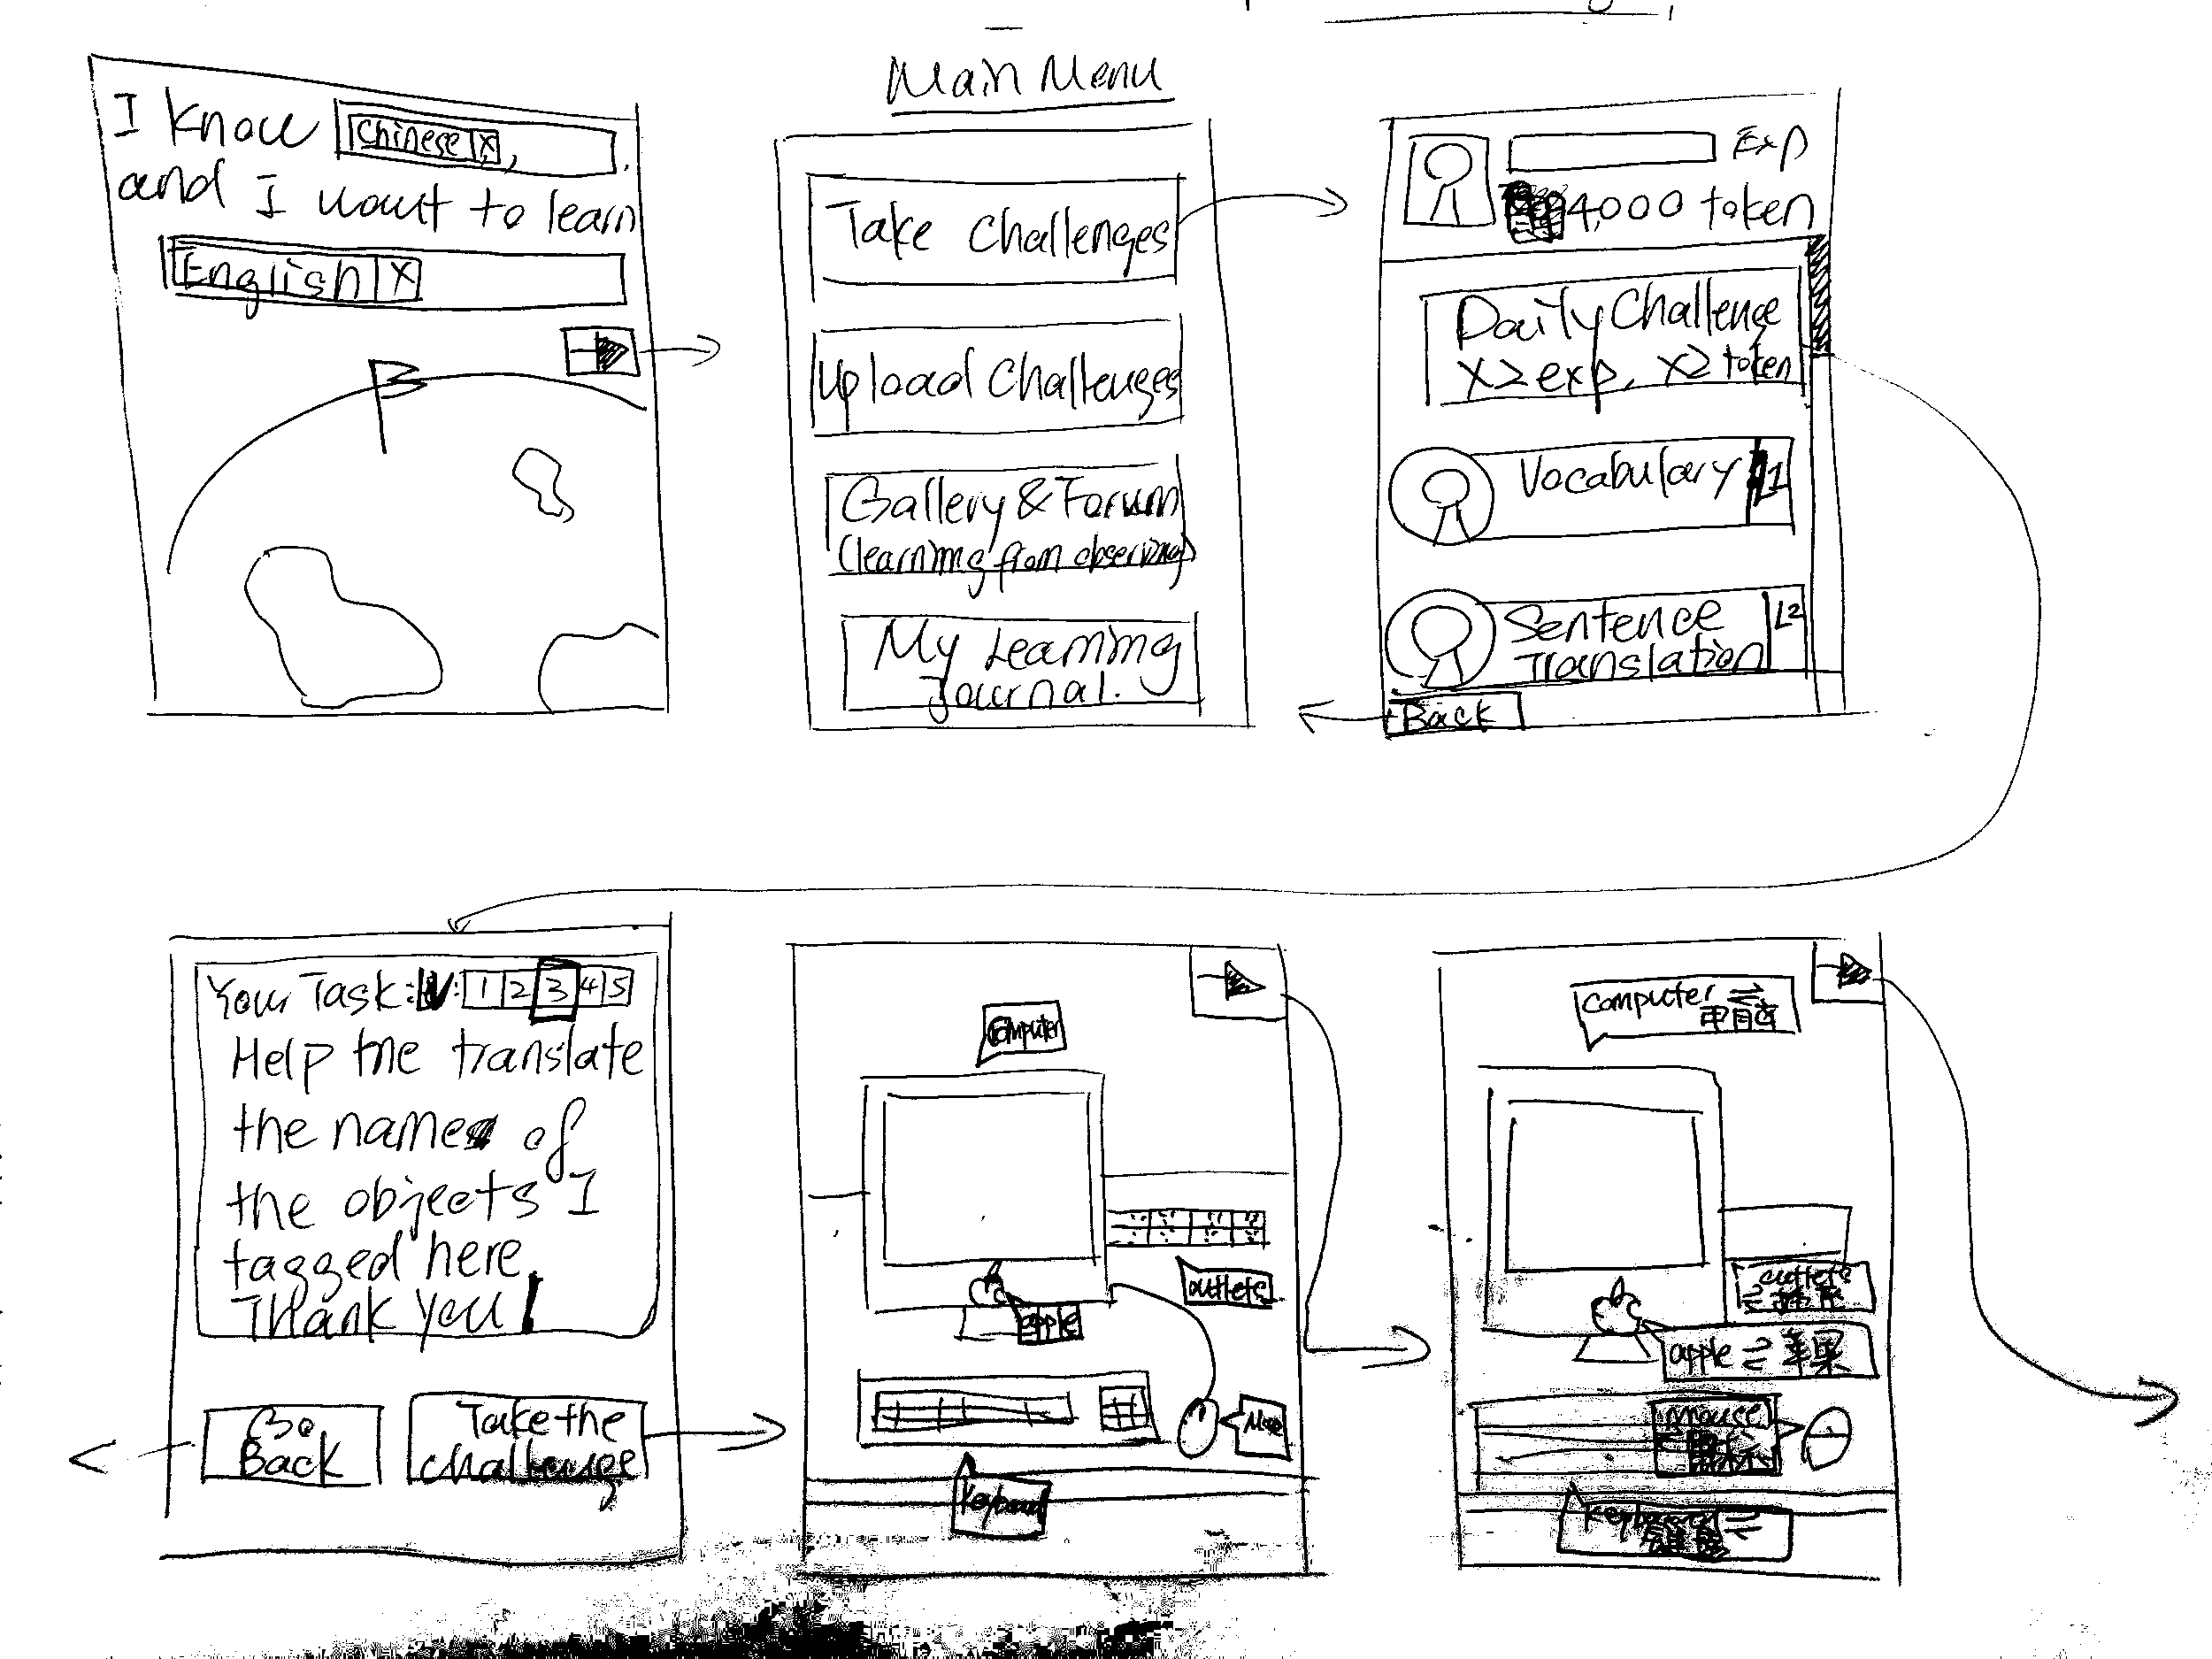 Main Menu
I know Chinese X,
and I want to learn
English X
Take Challenges
Upload Challenges
Gallery & Forum
(learning from observing)
My Learning
Journal.
Exp
4,000 token
Daily Challenge
X2 exp, X2 token
Vocabulary L1
Sentence L2
Translation
Back
Your Task: 1 2 3 4 5
Help me translate
the names of
the objects I
tagged here.
Thank you!
Go
Back
Take the
challenge
computer
outlets
apple
keyboard
computer ⇌
电脑
outlets
apple ⇌ 苹果
mouse
keyboard ⇌